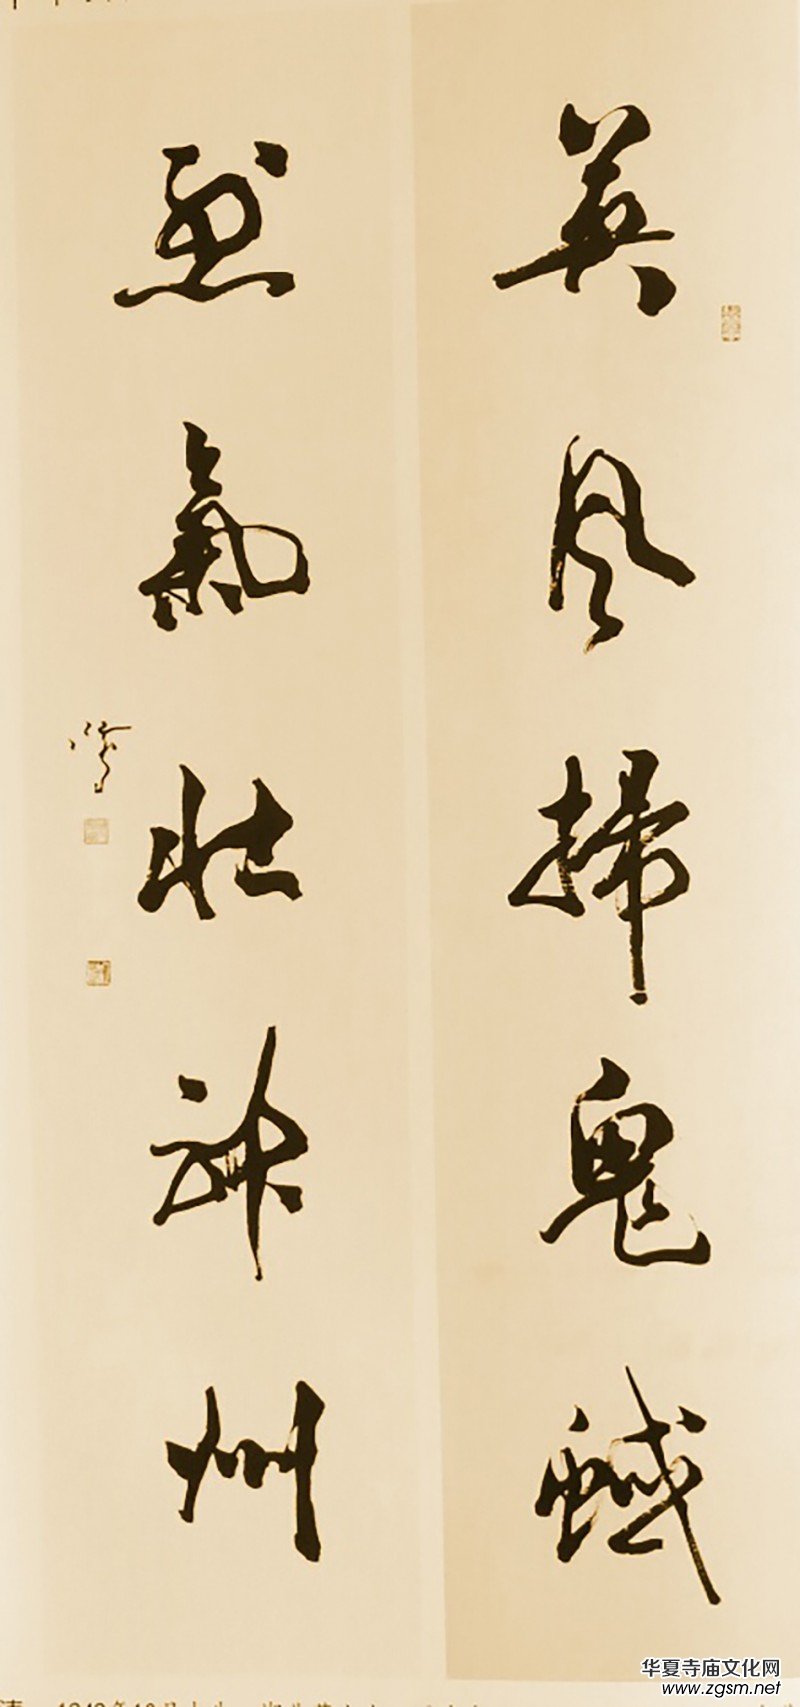 英风掃鬼蜮
烈氣壮神州
华夏寺庙文化网
www.zgsm.net